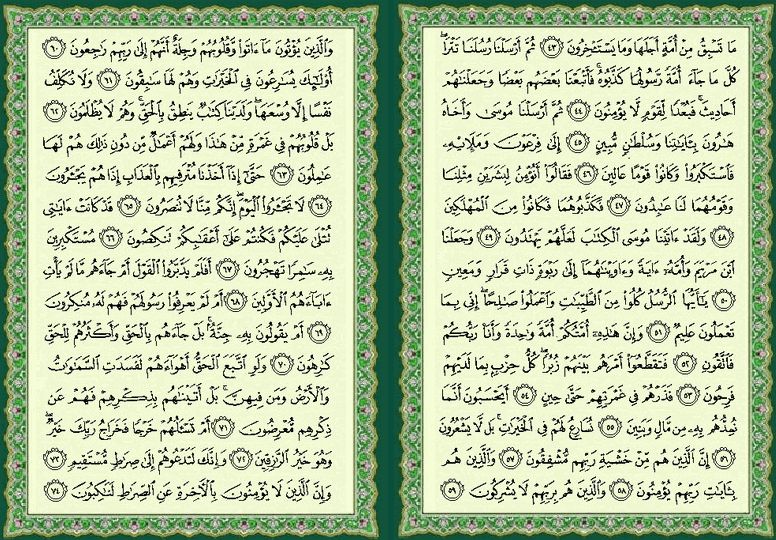 مَا تَسْبِقُ مِنْ أُمَّةٍ أَجَلَهَا وَمَا يَسْتَـْٔخِرُونَ ﴿٤٣﴾ ثُمَّ أَرْسَلْنَا رُسُلَنَا تَتْرَا ۖ
كُلَّ مَا جَآءَ أُمَّةً رَّسُولُهَا كَذَّبُوهُ ۚ فَأَتْبَعْنَا بَعْضَهُم بَعْضًا وَجَعَلْنَٰهُمْ
أَحَادِيثَ ۚ فَبُعْدًا لِّقَوْمٍ لَّا يُؤْمِنُونَ ﴿٤٤﴾ ثُمَّ أَرْسَلْنَا مُوسَىٰ وَأَخَاهُ
هَٰرُونَ بِـَٔايَٰتِنَا وَسُلْطَٰنٍ مُّبِينٍ ﴿٤٥﴾ إِلَىٰ فِرْعَوْنَ وَمَلَإِي۟هِۦ
فَٱسْتَكْبَرُوا۟ وَكَانُوا۟ قَوْمًا عَالِينَ ﴿٤٦﴾ فَقَالُوٓا۟ أَنُؤْمِنُ لِبَشَرَيْنِ مِثْلِنَا
وَقَوْمُهُمَا لَنَا عَٰبِدُونَ ﴿٤٧﴾ فَكَذَّبُوهُمَا فَكَانُوا۟ مِنَ ٱلْمُهْلَكِينَ
﴿٤٨﴾ وَلَقَدْ ءَاتَيْنَا مُوسَى ٱلْكِتَٰبَ لَعَلَّهُمْ يَهْتَدُونَ ﴿٤٩﴾ وَجَعَلْنَا
ٱبْنَ مَرْيَمَ وَأُمَّهُۥٓ ءَايَةً وَءَاوَيْنَٰهُمَآ إِلَىٰ رَبْوَةٍ ذَاتِ قَرَارٍ وَمَعِينٍ
﴿٥٠﴾ يَٰٓأَيُّهَا ٱلرُّسُلُ كُلُوا۟ مِنَ ٱلطَّيِّبَٰتِ وَٱعْمَلُوا۟ صَٰلِحًا ۖ إِنِّى بِمَا
تَعْمَلُونَ عَلِيمٌ ﴿٥١﴾ وَإِنَّ هَٰذِهِۦٓ أُمَّتُكُمْ أُمَّةً وَٰحِدَةً وَأَنَا۠ رَبُّكُمْ
فَٱتَّقُونِ ﴿٥٢﴾ فَتَقَطَّعُوٓا۟ أَمْرَهُم بَيْنَهُمْ زُبُرًا ۖ كُلُّ حِزْبٍۭ بِمَا لَدَيْهِمْ
فَرِحُونَ ﴿٥٣﴾ فَذَرْهُمْ فِى غَمْرَتِهِمْ حَتَّىٰ حِينٍ ﴿٥٤﴾ أَيَحْسَبُونَ أَنَّمَا
نُمِدُّهُم بِهِۦ مِن مَّالٍ وَبَنِينَ ﴿٥٥﴾ نُسَارِعُ لَهُمْ فِى ٱلْخَيْرَٰتِ ۚ بَل لَّا يَشْعُرُونَ
﴿٥٦﴾ إِنَّ ٱلَّذِينَ هُم مِّنْ خَشْيَةِ رَبِّهِم مُّشْفِقُونَ ﴿٥٧﴾ وَٱلَّذِينَ هُم
بِـَٔايَٰتِ رَبِّهِمْ يُؤْمِنُونَ ﴿٥٨﴾ وَٱلَّذِينَ هُم بِرَبِّهِمْ لَا يُشْرِكُونَ ﴿٥٩﴾
وَٱلَّذِينَ يُؤْتُونَ مَآ ءَاتَوا۟ وَّقُلُوبُهُمْ وَجِلَةٌ أَنَّهُمْ إِلَىٰ رَبِّهِمْ رَٰجِعُونَ ﴿٦٠﴾
أُو۟لَٰٓئِكَ يُسَٰرِعُونَ فِى ٱلْخَيْرَٰتِ وَهُمْ لَهَا سَٰبِقُونَ ﴿٦١﴾ وَلَا نُكَلِّفُ
نَفْسًا إِلَّا وُسْعَهَا ۖ وَلَدَيْنَا كِتَٰبٌ يَنطِقُ بِٱلْحَقِّ ۚ وَهُمْ لَا يُظْلَمُونَ ﴿٦٢﴾
بَلْ قُلُوبُهُمْ فِى غَمْرَةٍ مِّنْ هَٰذَا وَلَهُمْ أَعْمَٰلٌ مِّن دُونِ ذَٰلِكَ هُمْ لَهَا
عَٰمِلُونَ ﴿٦٣﴾ حَتَّىٰٓ إِذَآ أَخَذْنَا مُتْرَفِيهِم بِٱلْعَذَابِ إِذَا هُمْ يَجْـَٔرُونَ
﴿٦٤﴾ لَا تَجْـَٔرُوا۟ ٱلْيَوْمَ ۖ إِنَّكُم مِّنَّا لَا تُنصَرُونَ ﴿٦٥﴾ قَدْ كَانَتْ ءَايَٰتِى
تُتْلَىٰ عَلَيْكُمْ فَكُنتُمْ عَلَىٰٓ أَعْقَٰبِكُمْ تَنكِصُونَ ﴿٦٦﴾ مُسْتَكْبِرِينَ
بِهِۦ سَٰمِرًا تَهْجُرُونَ ﴿٦٧﴾ أَفَلَمْ يَدَّبَّرُوا۟ ٱلْقَوْلَ أَمْ جَآءَهُم مَّا لَمْ يَأْتِ
ءَابَآءَهُمُ ٱلْأَوَّلِينَ ﴿٦٨﴾ أَمْ لَمْ يَعْرِفُوا۟ رَسُولَهُمْ فَهُمْ لَهُۥ مُنكِرُونَ
﴿٦٩﴾ أَمْ يَقُولُونَ بِهِۦ جِنَّةٌۢ ۚ بَلْ جَآءَهُم بِٱلْحَقِّ وَأَكْثَرُهُمْ لِلْحَقِّ
كَٰرِهُونَ ﴿٧٠﴾ وَلَوِ ٱتَّبَعَ ٱلْحَقُّ أَهْوَآءَهُمْ لَفَسَدَتِ ٱلسَّمَٰوَٰتُ
وَٱلْأَرْضُ وَمَن فِيهِنَّ ۚ بَلْ أَتَيْنَٰهُم بِذِكْرِهِمْ فَهُمْ عَن
ذِكْرِهِم مُّعْرِضُونَ ﴿٧١﴾ أَمْ تَسْـَٔلُهُمْ خَرْجًا فَخَرَاجُ رَبِّكَ خَيْرٌ ۖ
وَهُوَ خَيْرُ ٱلرَّٰزِقِينَ ﴿٧٢﴾ وَإِنَّكَ لَتَدْعُوهُمْ إِلَىٰ صِرَٰطٍ مُّسْتَقِيمٍ ﴿٧٣﴾
وَإِنَّ ٱلَّذِينَ لَا يُؤْمِنُونَ بِٱلْـَٔاخِرَةِ عَنِ ٱلصِّرَٰطِ لَنَٰكِبُونَ ﴿٧٤﴾